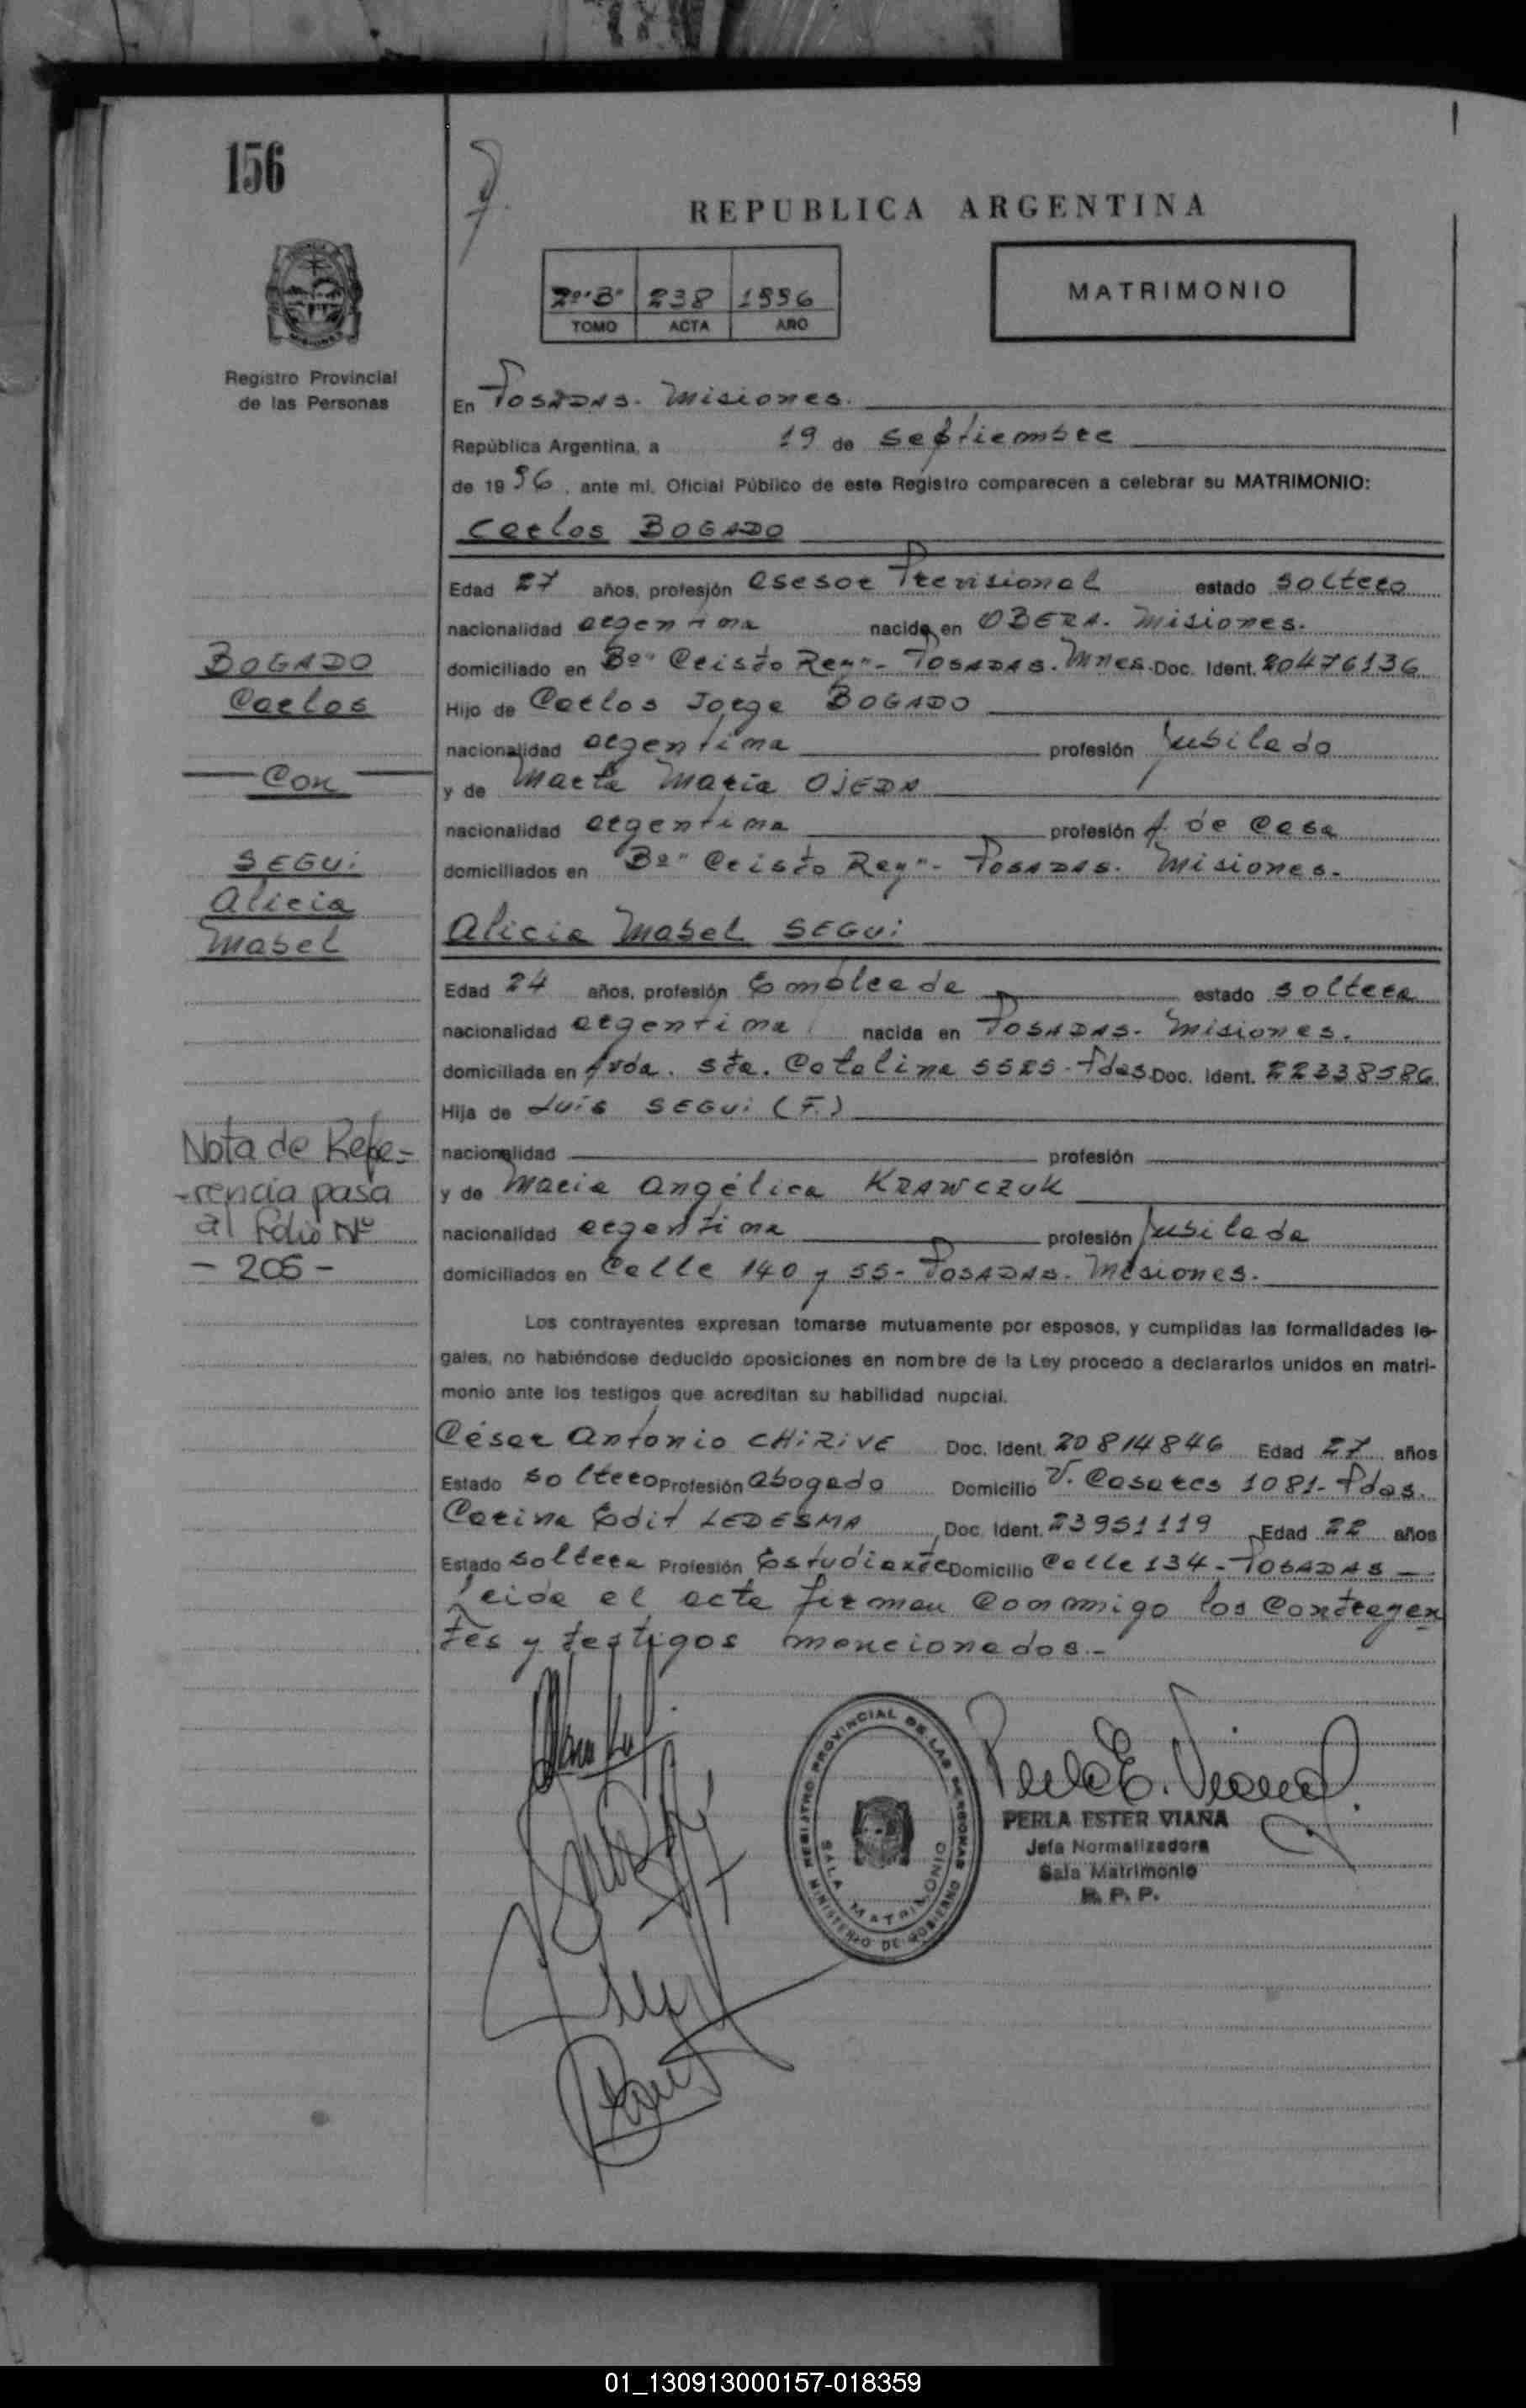 156
REPUBLICA ARGENTINA
2º"B" 238 1996
TOMO ACTA AÑO
MATRIMONIO
Registro Provincial
de las Personas
En Posadas. Misiones.
República Argentina, a 19 de septiembre
de 1996, ante mí, Oficial Público de este Registro comparecen a celebrar su MATRIMONIO:
Carlos BOGADO
Edad 27 años, profesión Asesor Previsional estado soltero
nacionalidad argentina nacido en OBERA. Misiones.
BOGADO
domiciliado en Bº "Cristo Rey"- POSADAS. Mnes. Doc. Ident. 20476136
Carlos
Hijo de Carlos Jorge BOGADO
nacionalidad argentina profesión Jubilado
Con
y de Marta María OJEDA
nacionalidad argentina profesión A. de Casa
SEGUI
domiciliados en Bº "Cristo Rey"- POSADAS. Misiones.
Alicia
Mabel
Alicia Mabel SEGUI
Edad 24 años, profesión Empleada estado soltera
nacionalidad argentina nacida en POSADAS- Misiones.
domiciliada en Avda. Sta. Catalina 5525- Pdas. Doc. Ident. 22338586
Hija de Luis SEGUI (F.)
Nota de Refe=
nacionalidad profesión
-rencia pasa
y de María Angélica KRAWCZUK
al folio Nº
nacionalidad argentina profesión Jubilada
- 206 -
domiciliados en Calle 140 y 55- POSADAS. Misiones.
Los contrayentes expresan tomarse mutuamente por esposos, y cumplidas las formalidades le-
gales, no habiéndose deducido oposiciones en nombre de la Ley procedo a declararlos unidos en matri-
monio ante los testigos que acreditan su habilidad nupcial.
César Antonio CHIRIVE Doc. Ident. 20814846 Edad 27 años
Estado soltero Profesión Abogado Domicilio V. Casares 1081- Pdas.
Carina Edit LEDESMA Doc. Ident. 23951119 Edad 22 años
Estado soltera Profesión Estudiante Domicilio Calle 134- POSADAS
Leida el acta firman conmigo los contrayen
tes y testigos mencionados.-
REGISTRO PROVINCIAL DE LAS PERSONAS
SALA MATRIMONIO
MINISTERIO DE GOBIERNO
Perla E. Viana
PERLA ESTER VIANA
Jefa Normalizadora
Sala Matrimonio
R. P. P.
01_130913000157-018359